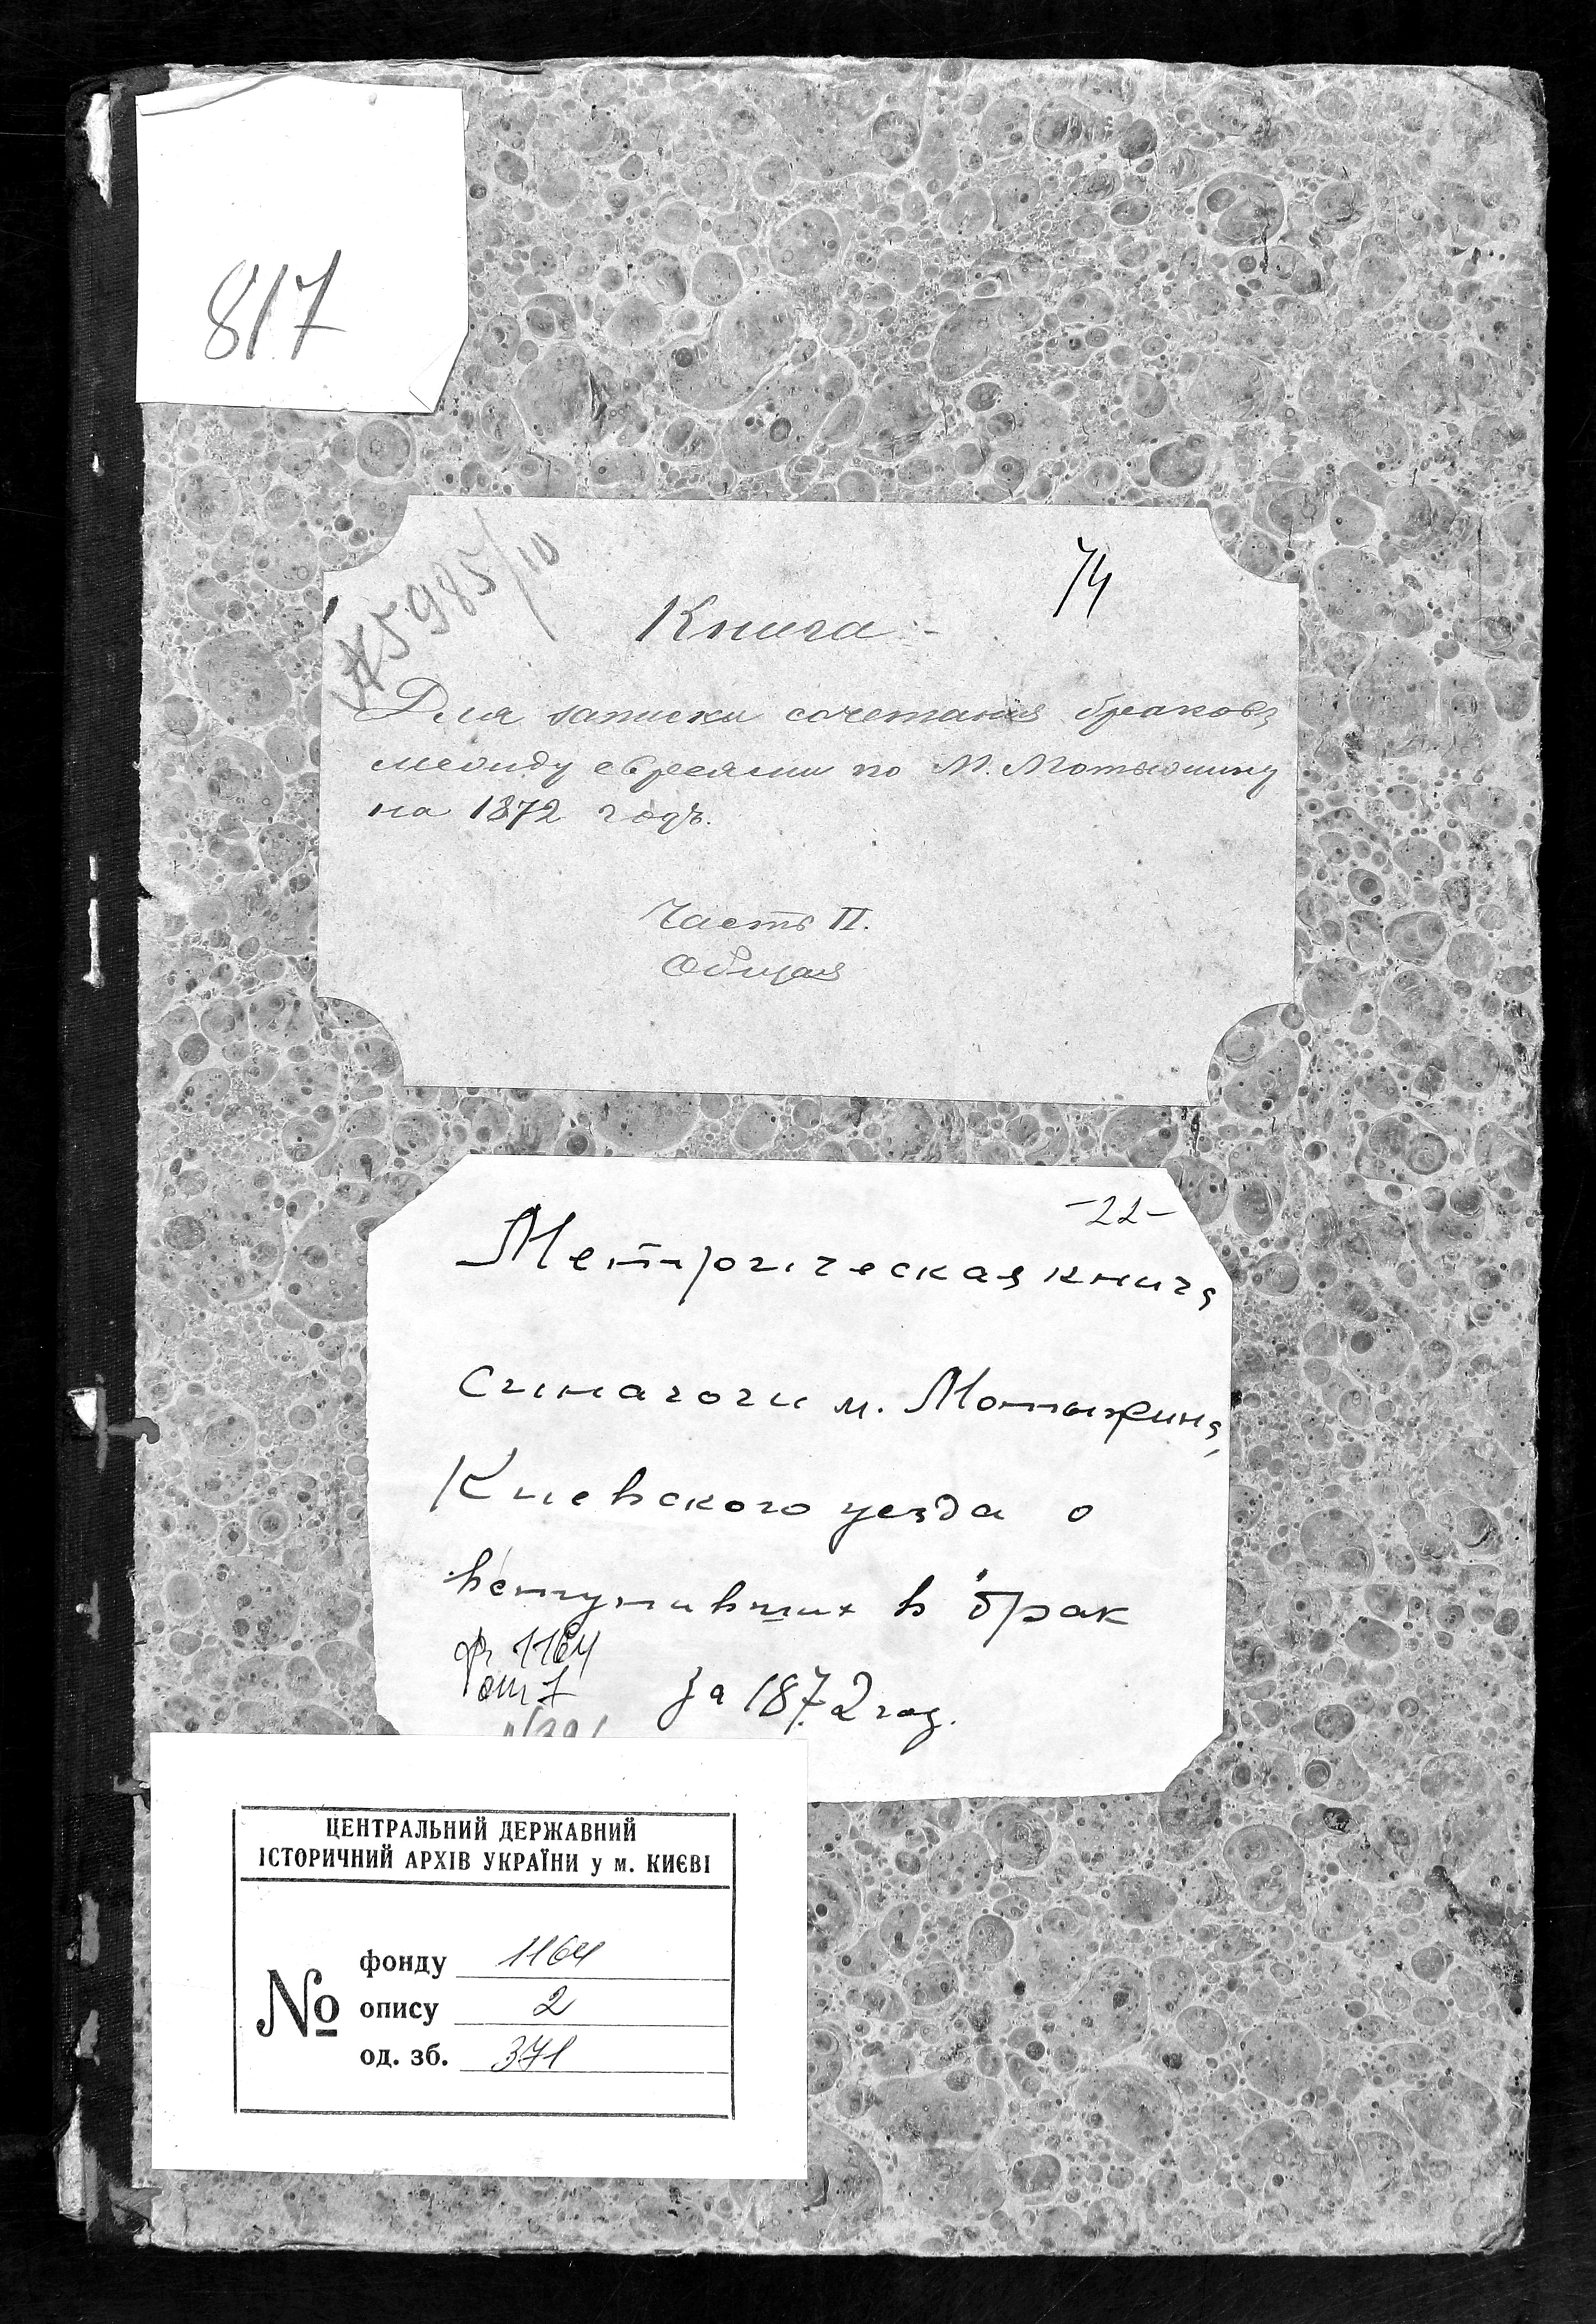 817
№5985/10
74
Книга
Для записки сочетания браковъ
между евреями по М. Мотыжину
на 1872 годъ.
Часть II.
Общая
-22-
Метрическая книга
синагоги м. Мотыжина,
Киевского уезда о
вступивших в брак
ф. 1164
оп 1
за 1872 год.
ЦЕНТРАЛЬНИЙ ДЕРЖАВНИЙ
ІСТОРИЧНИЙ АРХІВ УКРАЇНИ у м. КИЄВІ
№
фонду 1164
опису 2
од. зб. 371